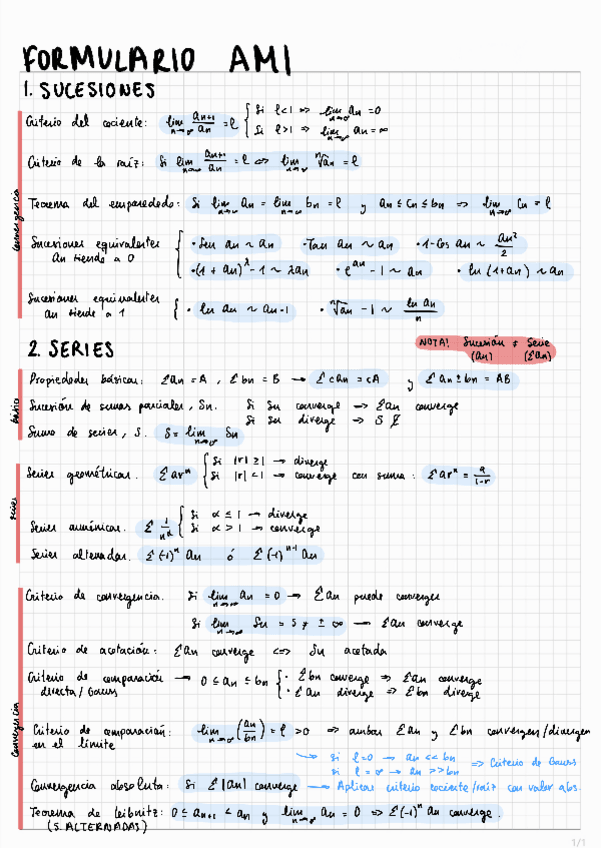 FORMULARIO AM1
1. SUCESIONES
Criterio del cociente: lim n→∞ an+1/an = l { Si l<1 ⇒ lim n→∞ an = 0
Si l>1 ⇒ lim n→∞ an = ∞
Criterio de la raíz: Si lim n→∞ an+1/an = l ⇔ lim n→∞ ⁿ√an = l
convergencia
Teorema del emparedado: Si lim n→∞ an = lim n→∞ bn = l y an ≤ cn ≤ bn ⇒ lim n→∞ cn = l
Sucesiones equivalentes an tiende a 0 { · Sen an ~ an · Tan an ~ an · 1-Cos an ~ an²/2
· (1 + an)^λ - 1 ~ λan · e^an - 1 ~ an · ln (1+an) ~ an
Sucesiones equivalentes an tiende a 1 { · ln an ~ an-1 · ⁿ√an - 1 ~ ln an/n
2. SERIES
NOTA! Sucesión ≠ Serie
(an) (Σan)
Propiedades básicas: Σan = A, Σbn = B → Σcan = cA y Σan ± bn = AB
básico
Sucesión de sumas parciales, Sn. Si Sn converge → Σan converge
Si Sn diverge → S ∄
Suma de series, S. S = lim n→∞ Sn
Series geométricas. Σarⁿ { Si |r| ≥ 1 → diverge
Si |r| < 1 → converge con suma: Σarⁿ = a/1-r
series
Series armónicas. Σ 1/n^α { Si α ≤ 1 → diverge
Si α > 1 → converge
Series alternadas. Σ(-1)ⁿ an ó Σ(-1)ⁿ⁻¹ an
Criterio de convergencia. Si lim n→∞ an = 0 → Σan puede converger
Si lim n→∞ Sn = S ≠ ± ∞ → Σan converge
Criterio de acotación: Σan converge ⇔ Sn acotada
Criterio de comparación directa/Gauss → 0 ≤ an ≤ bn { · Σbn converge ⇒ Σan converge
· Σan diverge ⇒ Σbn diverge
convergencia
Criterio de comparación en el límite: lim n→∞ (an/bn) = l > 0 ⇒ ambas Σan y Σbn convergen/divergen
→ si l=0 → an << bn
si l=∞ → an >> bn ⇒ Criterio de Gauss
Convergencia absoluta: Si Σ|an| converge → Aplicar criterio cociente/raíz con valor abs.
Teorema de Leibnitz: 0 ≤ an+1 ≤ an y lim n→∞ an = 0 ⇒ Σ(-1)ⁿ an converge.
(S. ALTERNADAS)
1/1